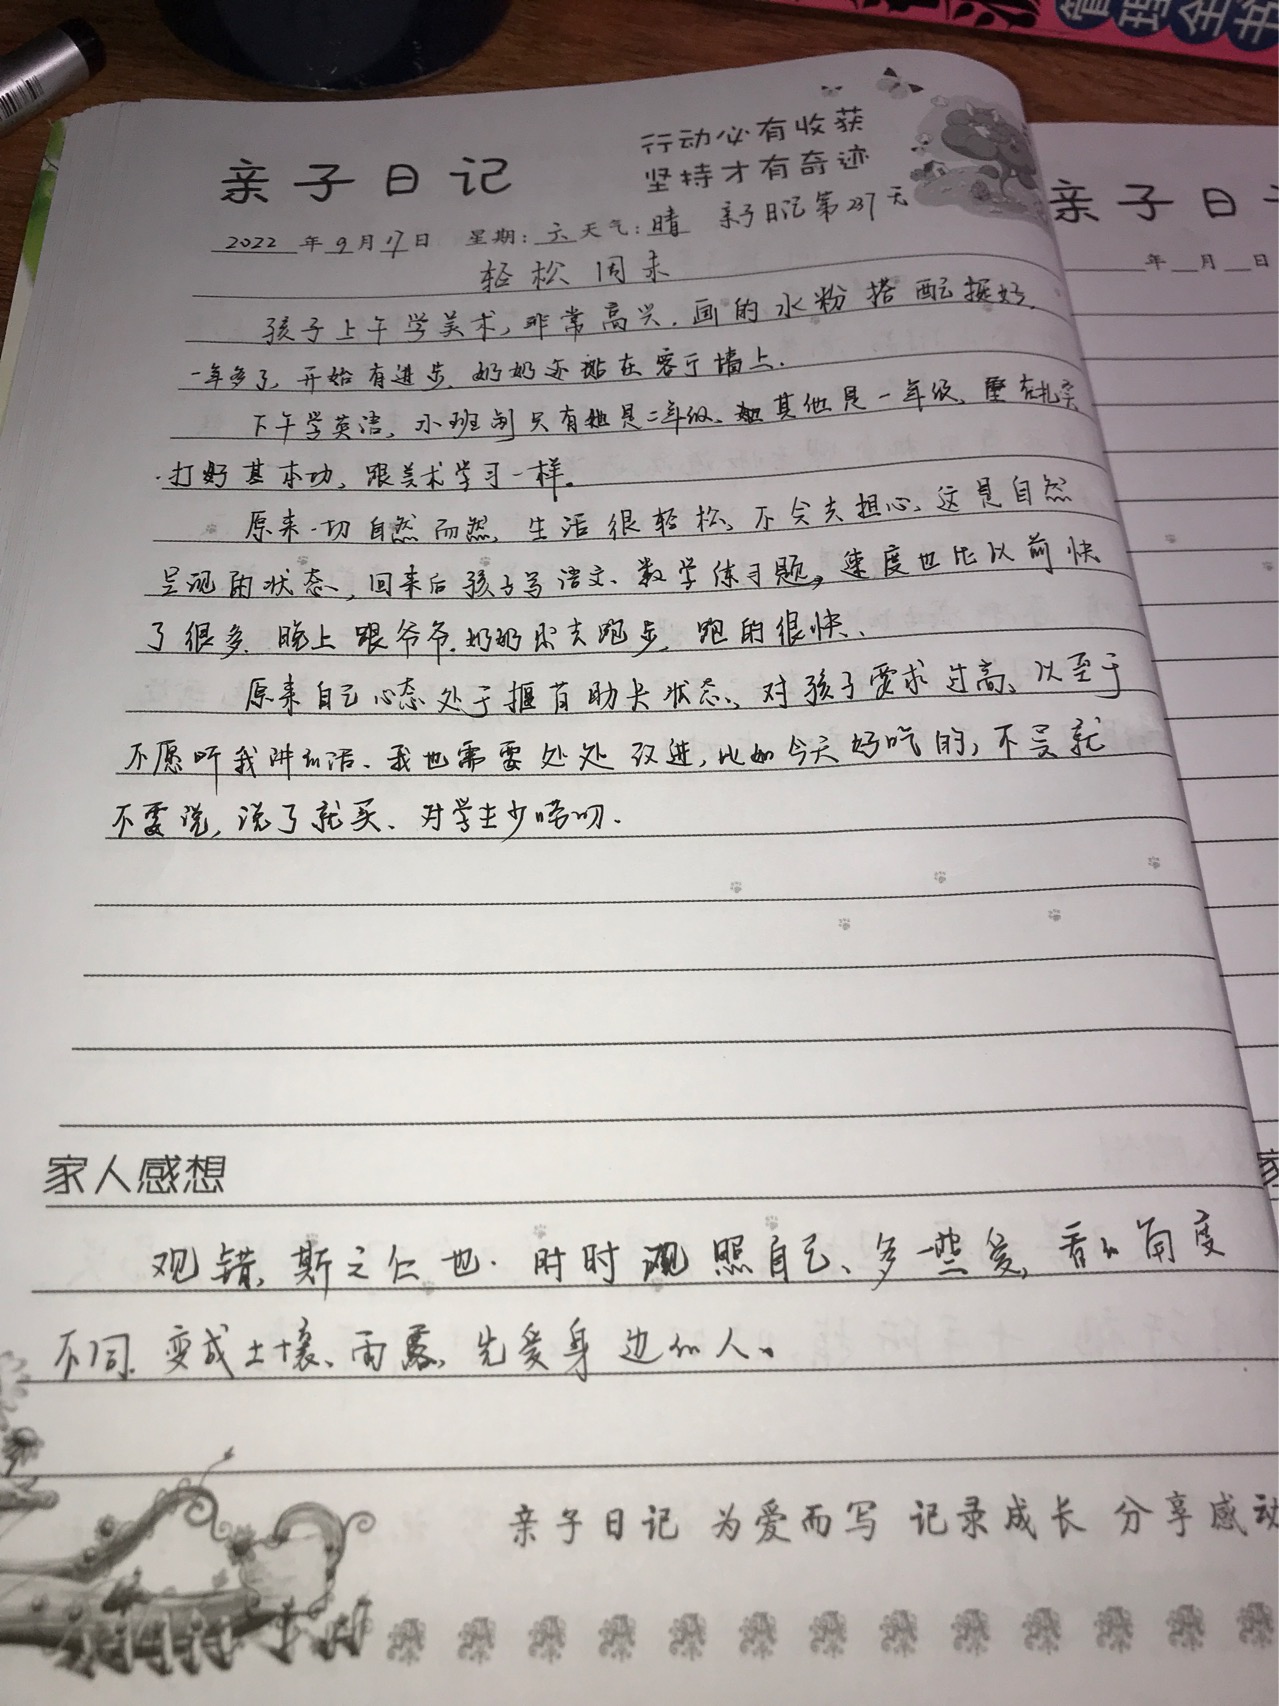 管理全书
亲子日记
行动必有收获
坚持才有奇迹
亲子日记第237天
2022年9月17日 星期:六 天气:晴
轻松周末
孩子上午学美术,非常高兴.画的水粉搭配挺好.
一年多了,开始有进步.奶奶还贴在客厅墙上.
下午学英语,小班制只有她是二年级、其他是一年级,重在扎实
打好基本功,跟美术学习一样。
原来一切自然而然,生活很轻松,不会去担心,这是自然
呈现的状态,回来后孩子写语文、数学练习题,速度也比以前快
了很多.晚上跟爷爷.奶奶出去跑步,跑的很快、
原来自己心态处于揠苗助长状态、对孩子要求过高、以至于
不愿听我讲的话、我也需要处处改进,比如今天好吃的,不买就
不要说,说了就买、对学生少唠叨.
家人感想
观错,斯之仁也.时时观照自己、多一些爱,看的角度
不同.变成土壤、雨露,先爱身边的人。
亲子日记 为爱而写 记录成长 分享感动
亲子日
年 月 日